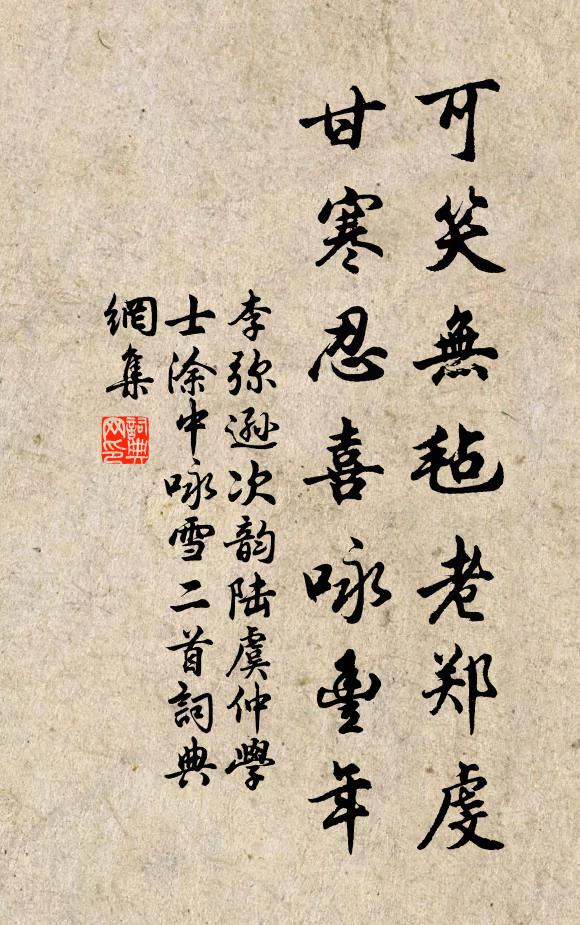 可笑無毡老郑虔
甘寒忍喜咏豊年
李弥遜次韵陆虞仲學
士涂中咏雪二首詞典
網集
詞典
网印